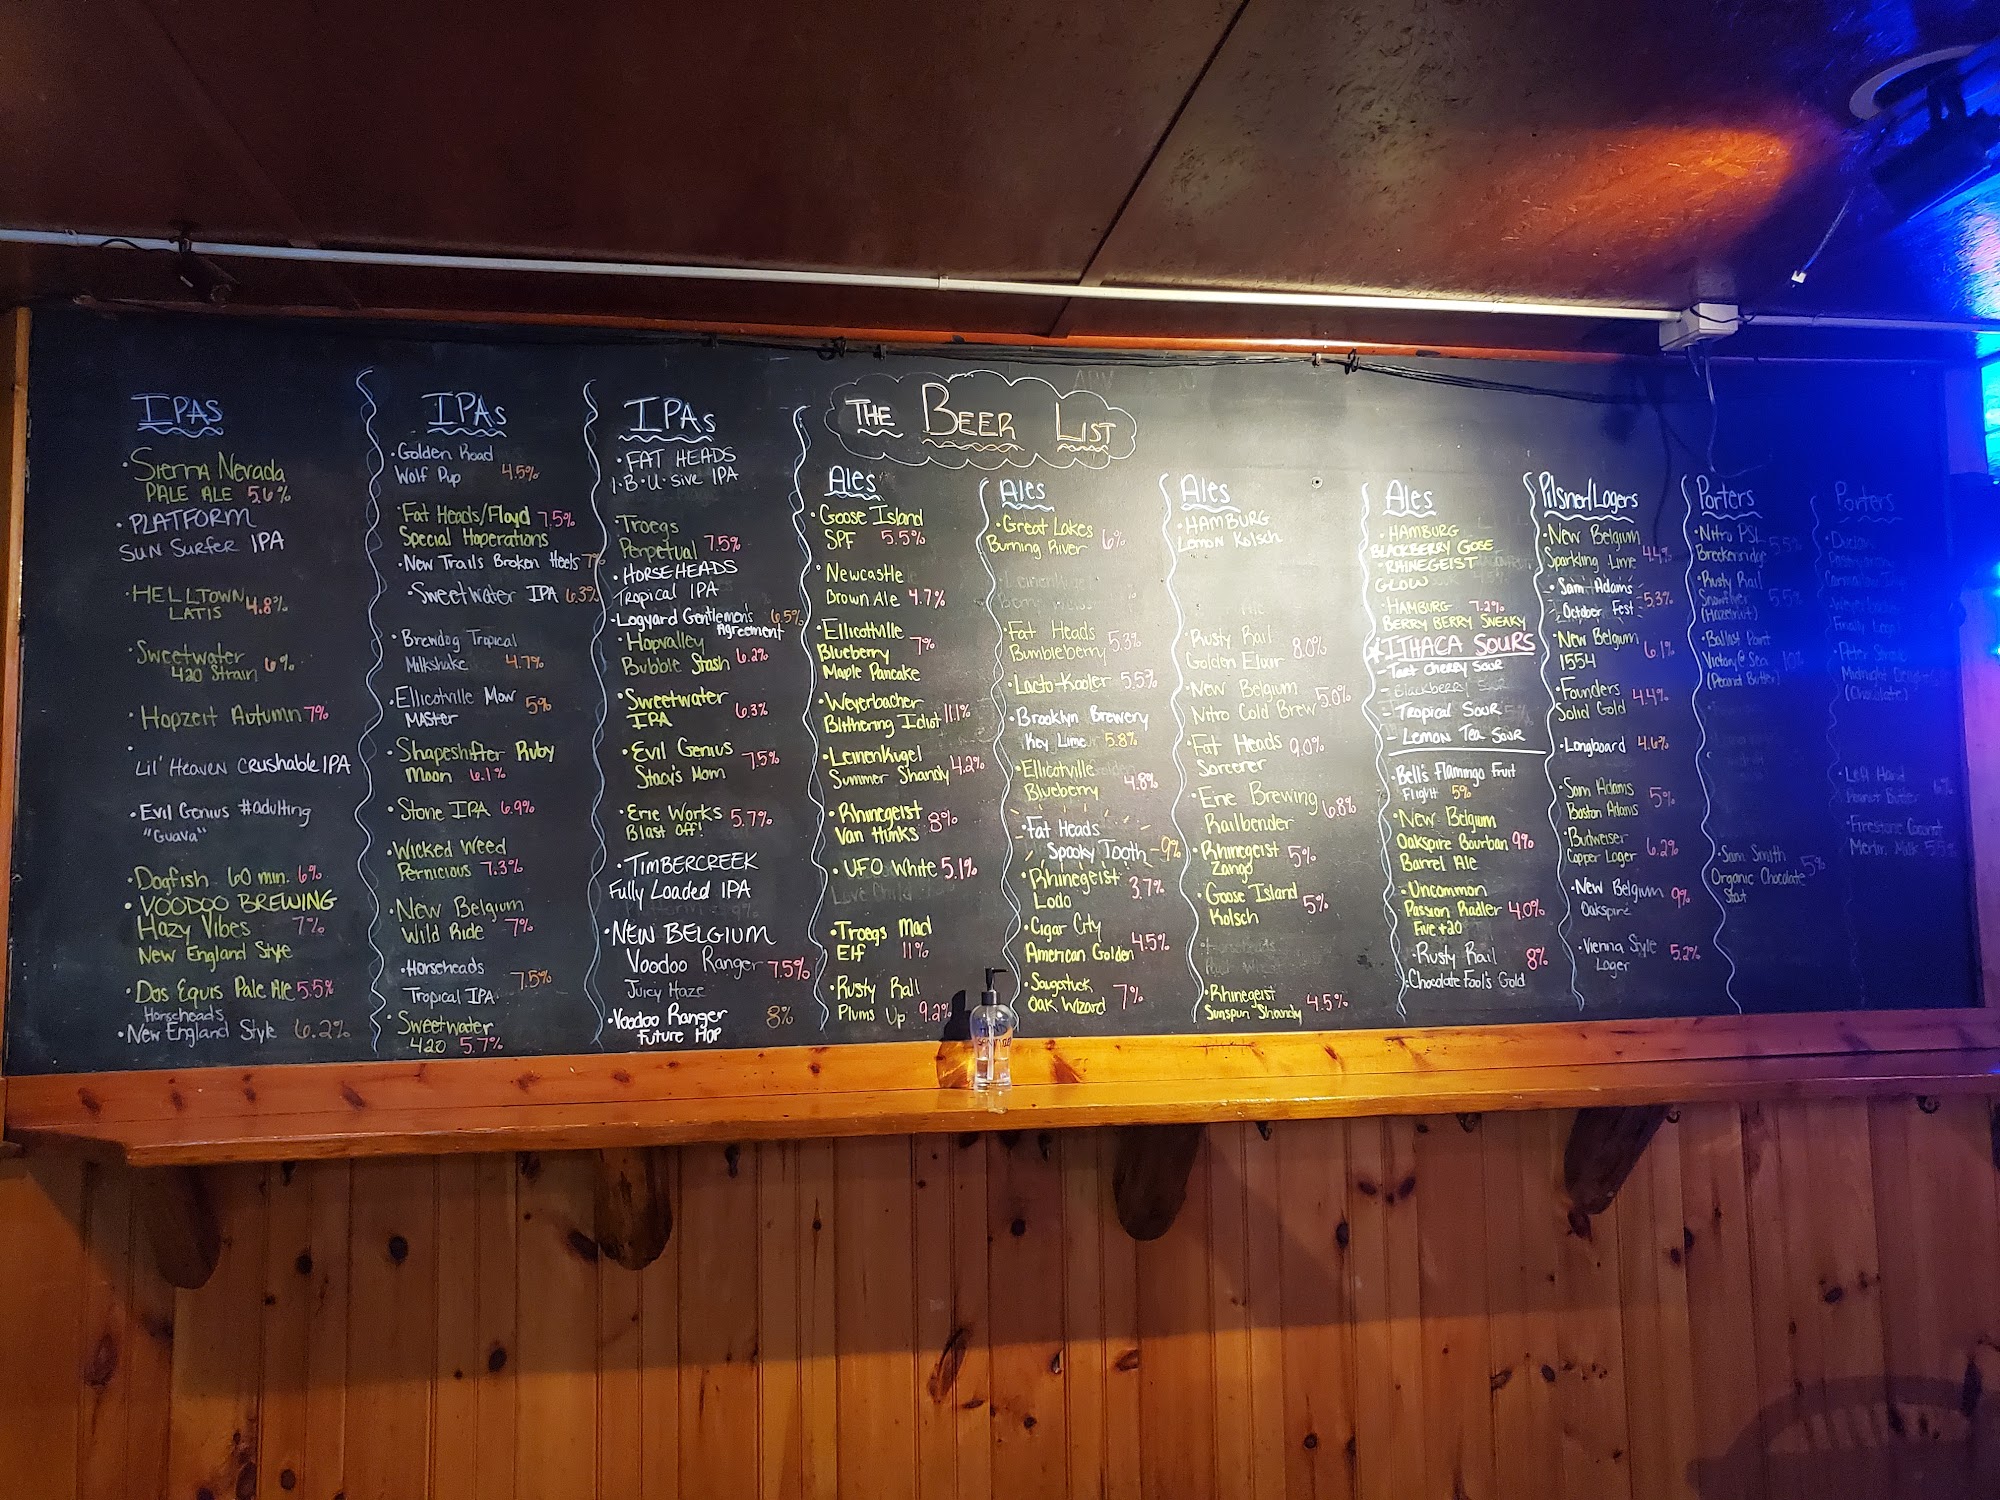 THE BEER LIST
IPAs
• Sierra Nevada
PALE ALE 5.6%
• PLATFORM
SUN SURFER IPA
• HELLTOWN
LATIS 4.8%
• Sweetwater
420 Strain 6%
• Hopzeit Autumn 7%
• Lil' Heaven Crushable IPA
• Evil Genius #adulting
"Guava"
• Dogfish 60 min. 6%
• VOODOO BREWING
Hazy Vibes 7%
New England Style
• Dos Equis Pale Ale 5.5%
Horseheads
• New England Style 6.2%
IPAs
• Golden Road
Wolf Pup 4.5%
• Fat Heads/Floyd 7.5%
Special Hoperations
• New Trails Broken Heels 7%
• Sweetwater IPA 6.3%
• Brewdog Tropical
Milkshake 4.7%
• Ellicotville Mow
MASter 5%
• Shapeshifter Ruby
Moon 6.1%
• Stone IPA 6.9%
• Wicked Weed
Pernicious 7.3%
• New Belgium
Wild Ride 7%
• Horseheads
Tropical IPA 7.5%
• Sweetwater
420 5.7%
IPAs
• FAT HEADS
I·B·U·sive IPA
• Troegs
Perpetual 7.5%
• HORSEHEADS
Tropical IPA
• Logyard Gentlemen's 6.5%
Agreement
• Hopvalley
Bubble Stash 6.2%
• Sweetwater
IPA 6.3%
• Evil Genius
Stacy's Mom 7.5%
• Erie Works
Blast off! 5.7%
• TIMBERCREEK
Fully Loaded IPA
• NEW BELGIUM
Voodoo Ranger 7.5%
Juicy Haze
• Voodoo Ranger 8%
Future Hop
Ales
• Goose Island
SPF 5.5%
• Newcastle
Brown Ale 4.7%
• Ellicottville
Blueberry 7%
Maple Pancake
• Weyerbacher
Blithering Idiot 11.1%
• Leinenkugel
Summer Shandy 4.2%
• Rhinegeist
Van Hunks 8%
• UFO White 5.1%
Love Child
• Troegs Mad
Elf 11%
• Rusty Rail
Plums Up 9.2%
Ales
• Great Lakes
Burning River 6%
• Fat Heads
Bumbleberry 5.3%
• Lacto-Kooler 5.5%
• Brooklyn Brewery
Key Lime 5.8%
• Ellicotville
Blueberry 4.8%
• Fat Heads
Spooky Tooth -9%
• Rhinegeist
Lodo 3.7%
• Cigar City
American Golden 4.5%
• Saugatuck
Oak Wizard 7%
Ales
• HAMBURG
Lemon Kolsch
• Rusty Rail
Golden Elixir 8.0%
• New Belgium
Nitro Cold Brew 5.0%
• Fat Heads
Sorcerer 9.0%
• Erie Brewing
Railbender 6.8%
• Rhinegeist
Zango 5%
• Goose Island
Kolsch 5%
• Rhinegeist
Sunspun Shandy 4.5%
Ales
• HAMBURG
BLACKBERRY GOSE
• RHINEGEIST
GLOW
• HAMBURG 7.2%
BERRY BERRY SNEAKY
* ITHACA SOURS
- Tart Cherry Sour
- Blackberry Sour
- Tropical Sour
- Lemon Tea Sour
• Bell's Flamingo Fruit
Flight 5%
• New Belgium
Oakspire Bourban 9%
Barrel Ale
• Uncommon
Passion Radler 4.0%
Five & 20
• Rusty Rail 8%
Chocolate Fool's Gold
Pilsner/Lagers
• New Belgium
Sparkling Lime 4.4%
• Sam Adams
October Fest -5.3%
• New Belgium
1554 6.1%
• Founders
Solid Gold 4.4%
• Longboard 4.6%
• Sam Adams
Boston Adams 5%
• Budweiser
Copper Lager 6.2%
• New Belgium
Oakspire 9%
• Vienna Style
Lager 5.2%
Porters
• Nitro PSL
Breckenridge 5.5%
• Rusty Rail
(Hazelnut) 5.5%
• Ballast Point
Victory @ Sea 10%
(Peanut Butter)
• Sam Smith
Organic Chocolate 5%
Stout
Porters
Midnight
(Chocolate)
• Left Hand
Peanut Butter
• Firestone Coconut
Merlin Milk 5.5%
HAND